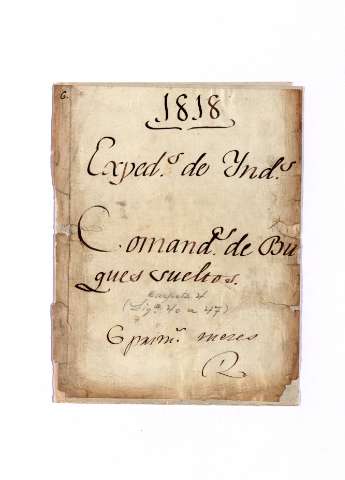 6.
1818
Exped.s de Ynd.s
Comand.tes de Bu
ques sueltos.
Carpeta 4
(Sig.s 40 a 47)
6 prim.s meses
R